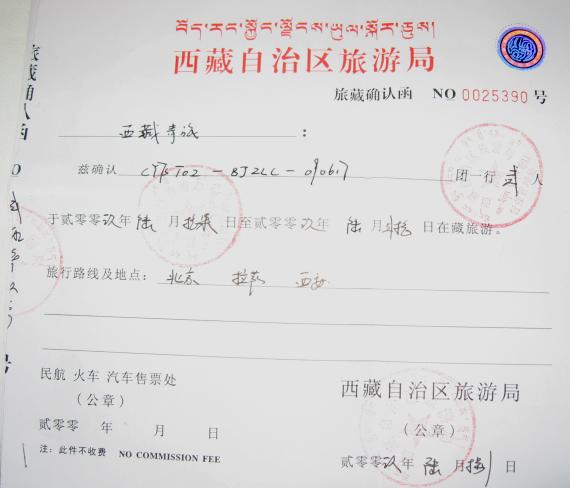 བོད་རང་སྐྱོང་ལྗོངས་ཡུལ་སྐོར་ཅུས།
西藏自治区旅游局
旅藏确认函 NO 0025390 号
西藏青旅：
兹确认 CYTST02-BJZLL-090617 团一行 贰 人
于贰零零玖年陆月 日至贰零零玖年陆月 日在藏旅游。
旅行路线及地点：北京 拉萨 西安
民航 火车 汽车售票处
（公章）
贰零零 年 月 日
注：此件不收费 NO COMMISSION FEE
西藏自治区旅游局
（公章）
贰零零玖年陆月 日
旅藏确认函